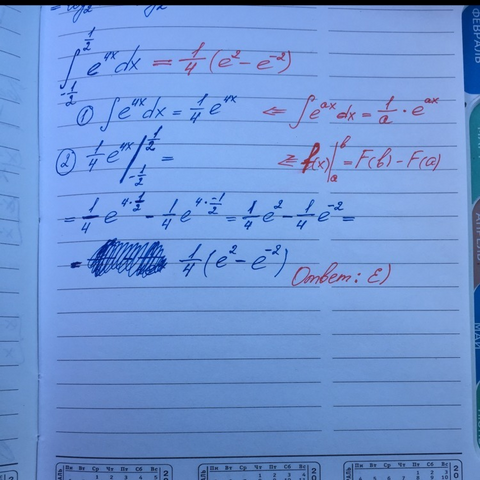 ∫_{-1/2}^{1/2} e^{4x} dx = 1/4 (e^2 - e^{-2})
① ∫e^{4x} dx = 1/4 e^{4x} ⇐ ∫e^{ax} dx = 1/a · e^{ax}
② 1/4 e^{4x} |_{-1/2}^{1/2} = f(x)|_a^b = F(b) - F(a)
= 1/4 e^{4·1/2} - 1/4 e^{4·-1/2} = 1/4 e^2 - 1/4 e^{-2} =
= 1/4 (e^2 - e^{-2})
Ответ: E)
ФЕВРАЛЬ
АПРЕЛЬ
МАЙ
Пн Вт Ср Чт Пт Сб Вс
Пн Вт Ср Чт Пт Сб Вс
Пн Вт Ср Чт Пт Сб Вс